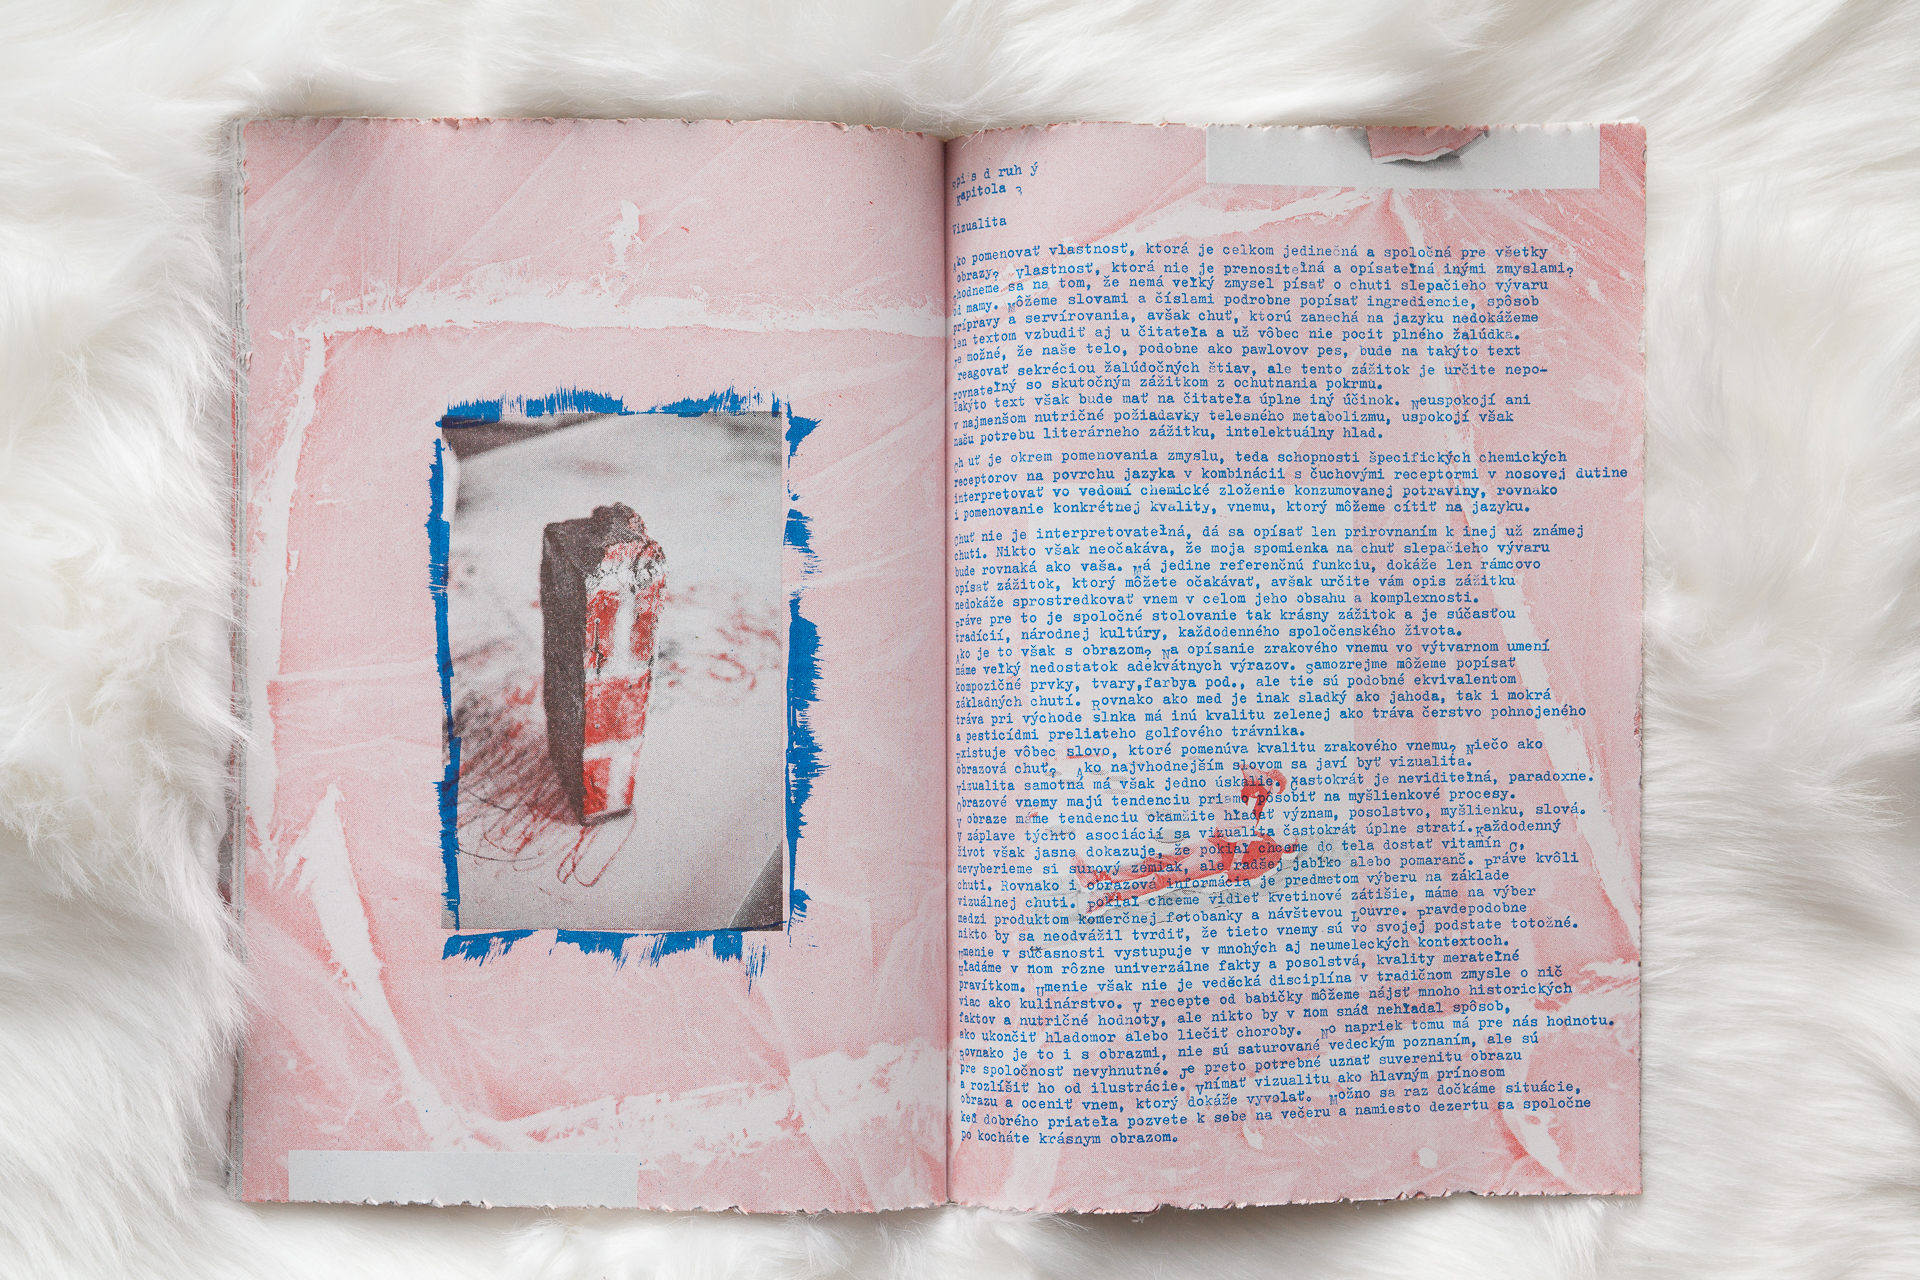 spis d ruh ý
kapitola 3
Vizualita
Ako pomenovať vlastnosť, ktorá je celkom jedinečná a spoločná pre všetky
obrazy? Vlastnosť, ktorá nie je prenositeľná a opísateľná inými zmyslami?
Zhodneme sa na tom, že nemá veľký zmysel písať o chuti slepačieho vývaru
od mamy. Môžeme slovami a číslami podrobne popísať ingrediencie, spôsob
prípravy a servírovania, avšak chuť, ktorú zanechá na jazyku nedokážeme
len textom vzbudiť aj u čitateľa a už vôbec nie pocit plného žalúdka.
Je možné, že naše telo, podobne ako pawlovov pes, bude na takýto text
reagovať sekréciou žalúdočných štiav, ale tento zážitok je určite nepo-
rovnateľný so skutočným zážitkom z ochutnania pokrmu.
Takýto text však bude mať na čitateľa úplne iný účinok. Neuspokojí ani
v najmenšom nutričné požiadavky telesného metabolizmu, uspokojí však
našu potrebu literárneho zážitku, intelektuálny hlad.
Ch uť je okrem pomenovania zmyslu, teda schopnosti špecifických chemických
receptorov na povrchu jazyka v kombinácii s čuchovými receptormi v nosovej dutine
interpretovať vo vedomí chemické zloženie konzumovanej potraviny, rovnako
i pomenovanie konkrétnej kvality, vnemu, ktorý môžeme cítiť na jazyku.
Chuť nie je interpretovateľná, dá sa opísať len prirovnaním k inej už známej
chuti. Nikto však neočakáva, že moja spomienka na chuť slepačieho vývaru
bude rovnaká ako vaša. Má jedine referenčnú funkciu, dokáže len rámcovo
opísať zážitok, ktorý môžete očakávať, avšak určite vám opis zážitku
nedokáže sprostredkovať vnem v celom jeho obsahu a komplexnosti.
Práve pre to je spoločné stolovanie tak krásny zážitok a je súčasťou
tradícií, národnej kultúry, každodenného spoločenského života.
Ako je to však s obrazom? Na opísanie zrakového vnemu vo výtvarnom umení
máme veľký nedostatok adekvátnych výrazov. Samozrejme môžeme popísať
kompozičné prvky, tvary,farbya pod., ale tie sú podobné ekvivalentom
základných chutí. Rovnako ako med je inak sladký ako jahoda, tak i mokrá
tráva pri východe slnka má inú kvalitu zelenej ako tráva čerstvo pohnojeného
a pesticídmi preliateho golfového trávnika.
Existuje vôbec slovo, ktoré pomenúva kvalitu zrakového vnemu? Niečo ako
obrazová chuť? Ako najvhodnejším slovom sa javí byť vizualita.
Vizualita samotná má však jedno úskalie. Častokrát je neviditeľná, paradoxne.
Obrazové vnemy majú tendenciu priamo pôsobiť na myšlienkové procesy.
V obraze máme tendenciu okamžite hľadať význam, posolstvo, myšlienku, slová.
V záplave týchto asociácií sa vizualita častokrát úplne stratí.Každodenný
život však jasne dokazuje, že pokiaľ chceme do tela dostať vitamín C,
nevyberieme si surový zemiak, ale radšej jablko alebo pomaranč. Práve kvôli
chuti. Rovnako i obrazová informácia je predmetom výberu na základe
vizuálnej chuti. Pokiaľ chceme vidieť kvetinové zátišie, máme na výber
medzi produktom komerčnej fotobanky a návštevou Louvre. Pravdepodobne
nikto by sa neodvážil tvrdiť, že tieto vnemy sú vo svojej podstate totožné.
Umenie v súčasnosti vystupuje v mnohých aj neumeleckých kontextoch.
Hľadáme v ňom rôzne univerzálne fakty a posolstvá, kvality merateľné
pravítkom. Umenie však nie je vedecká disciplína v tradičnom zmysle o nič
viac ako kulinárstvo. V recepte od babičky môžeme nájsť mnoho historických
faktov a nutričné hodnoty, ale nikto by v ňom snáď nehľadal spôsob,
ako ukončiť hladomor alebo liečiť choroby. No napriek tomu má pre nás hodnotu.
Rovnako je to i s obrazmi, nie sú saturované vedeckým poznaním, ale sú
pre spoločnosť nevyhnutné. Je preto potrebné uznať suverenitu obrazu
a rozlíšiť ho od ilustrácie. Vnímať vizualitu ako hlavným prínosom
obrazu a oceniť vnem, ktorý dokáže vyvolať. Možno sa raz dočkáme situácie,
keď dobrého priateľa pozvete k sebe na večeru a namiesto dezertu sa spoločne
po kocháte krásnym obrazom.